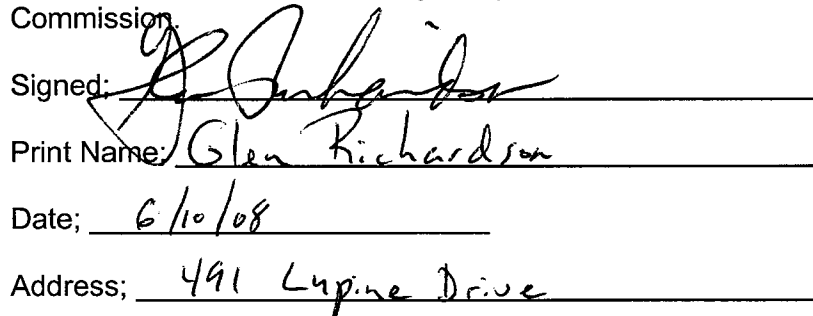 Commission.
Signed;
Print Name; Glen Richardson
Date; 6/10/08
Address; 491 Lupine Drive